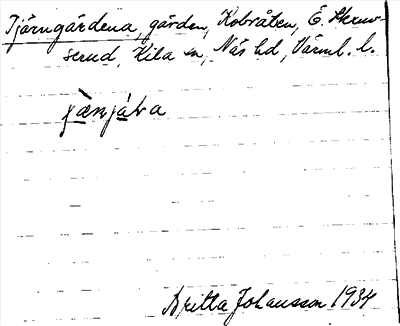 Tjärngårdena, gården, Kobråten, Ö. Skruv-
serud, Kila sn, Näs hd, Värml. l.
Britta Johansson 1934